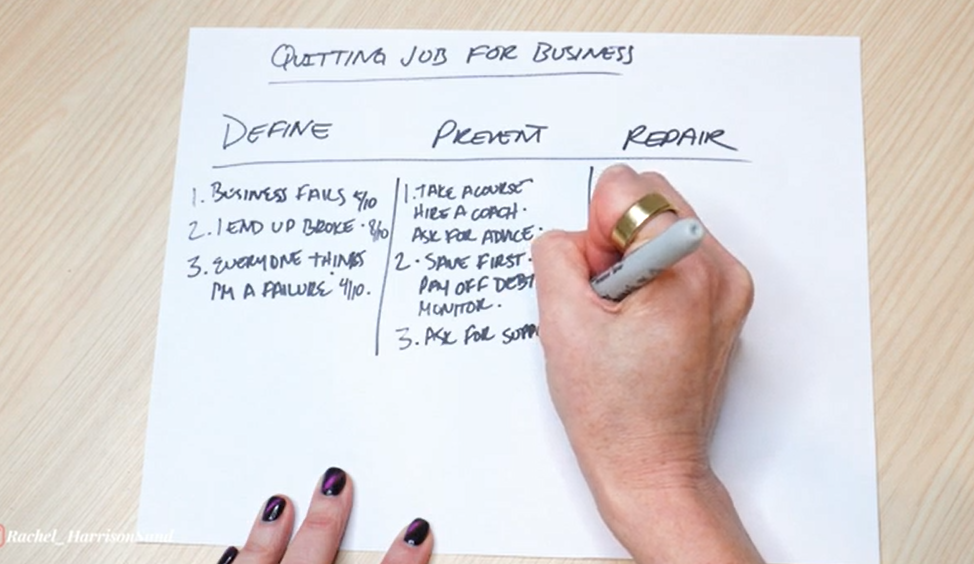 QUITTING JOB FOR BUSINESS
DEFINE
PREVENT
REPAIR
1. BUSINESS FAILS 5/10
2. I END UP BROKE · 8/10
3. EVERYONE THINKS
I'M A FAILURE · 4/10.
1. TAKE A COURSE
HIRE A COACH.
ASK FOR ADVICE.
2. SAVE FIRST.
PAY OFF DEBT
MONITOR.
3. ASK FOR